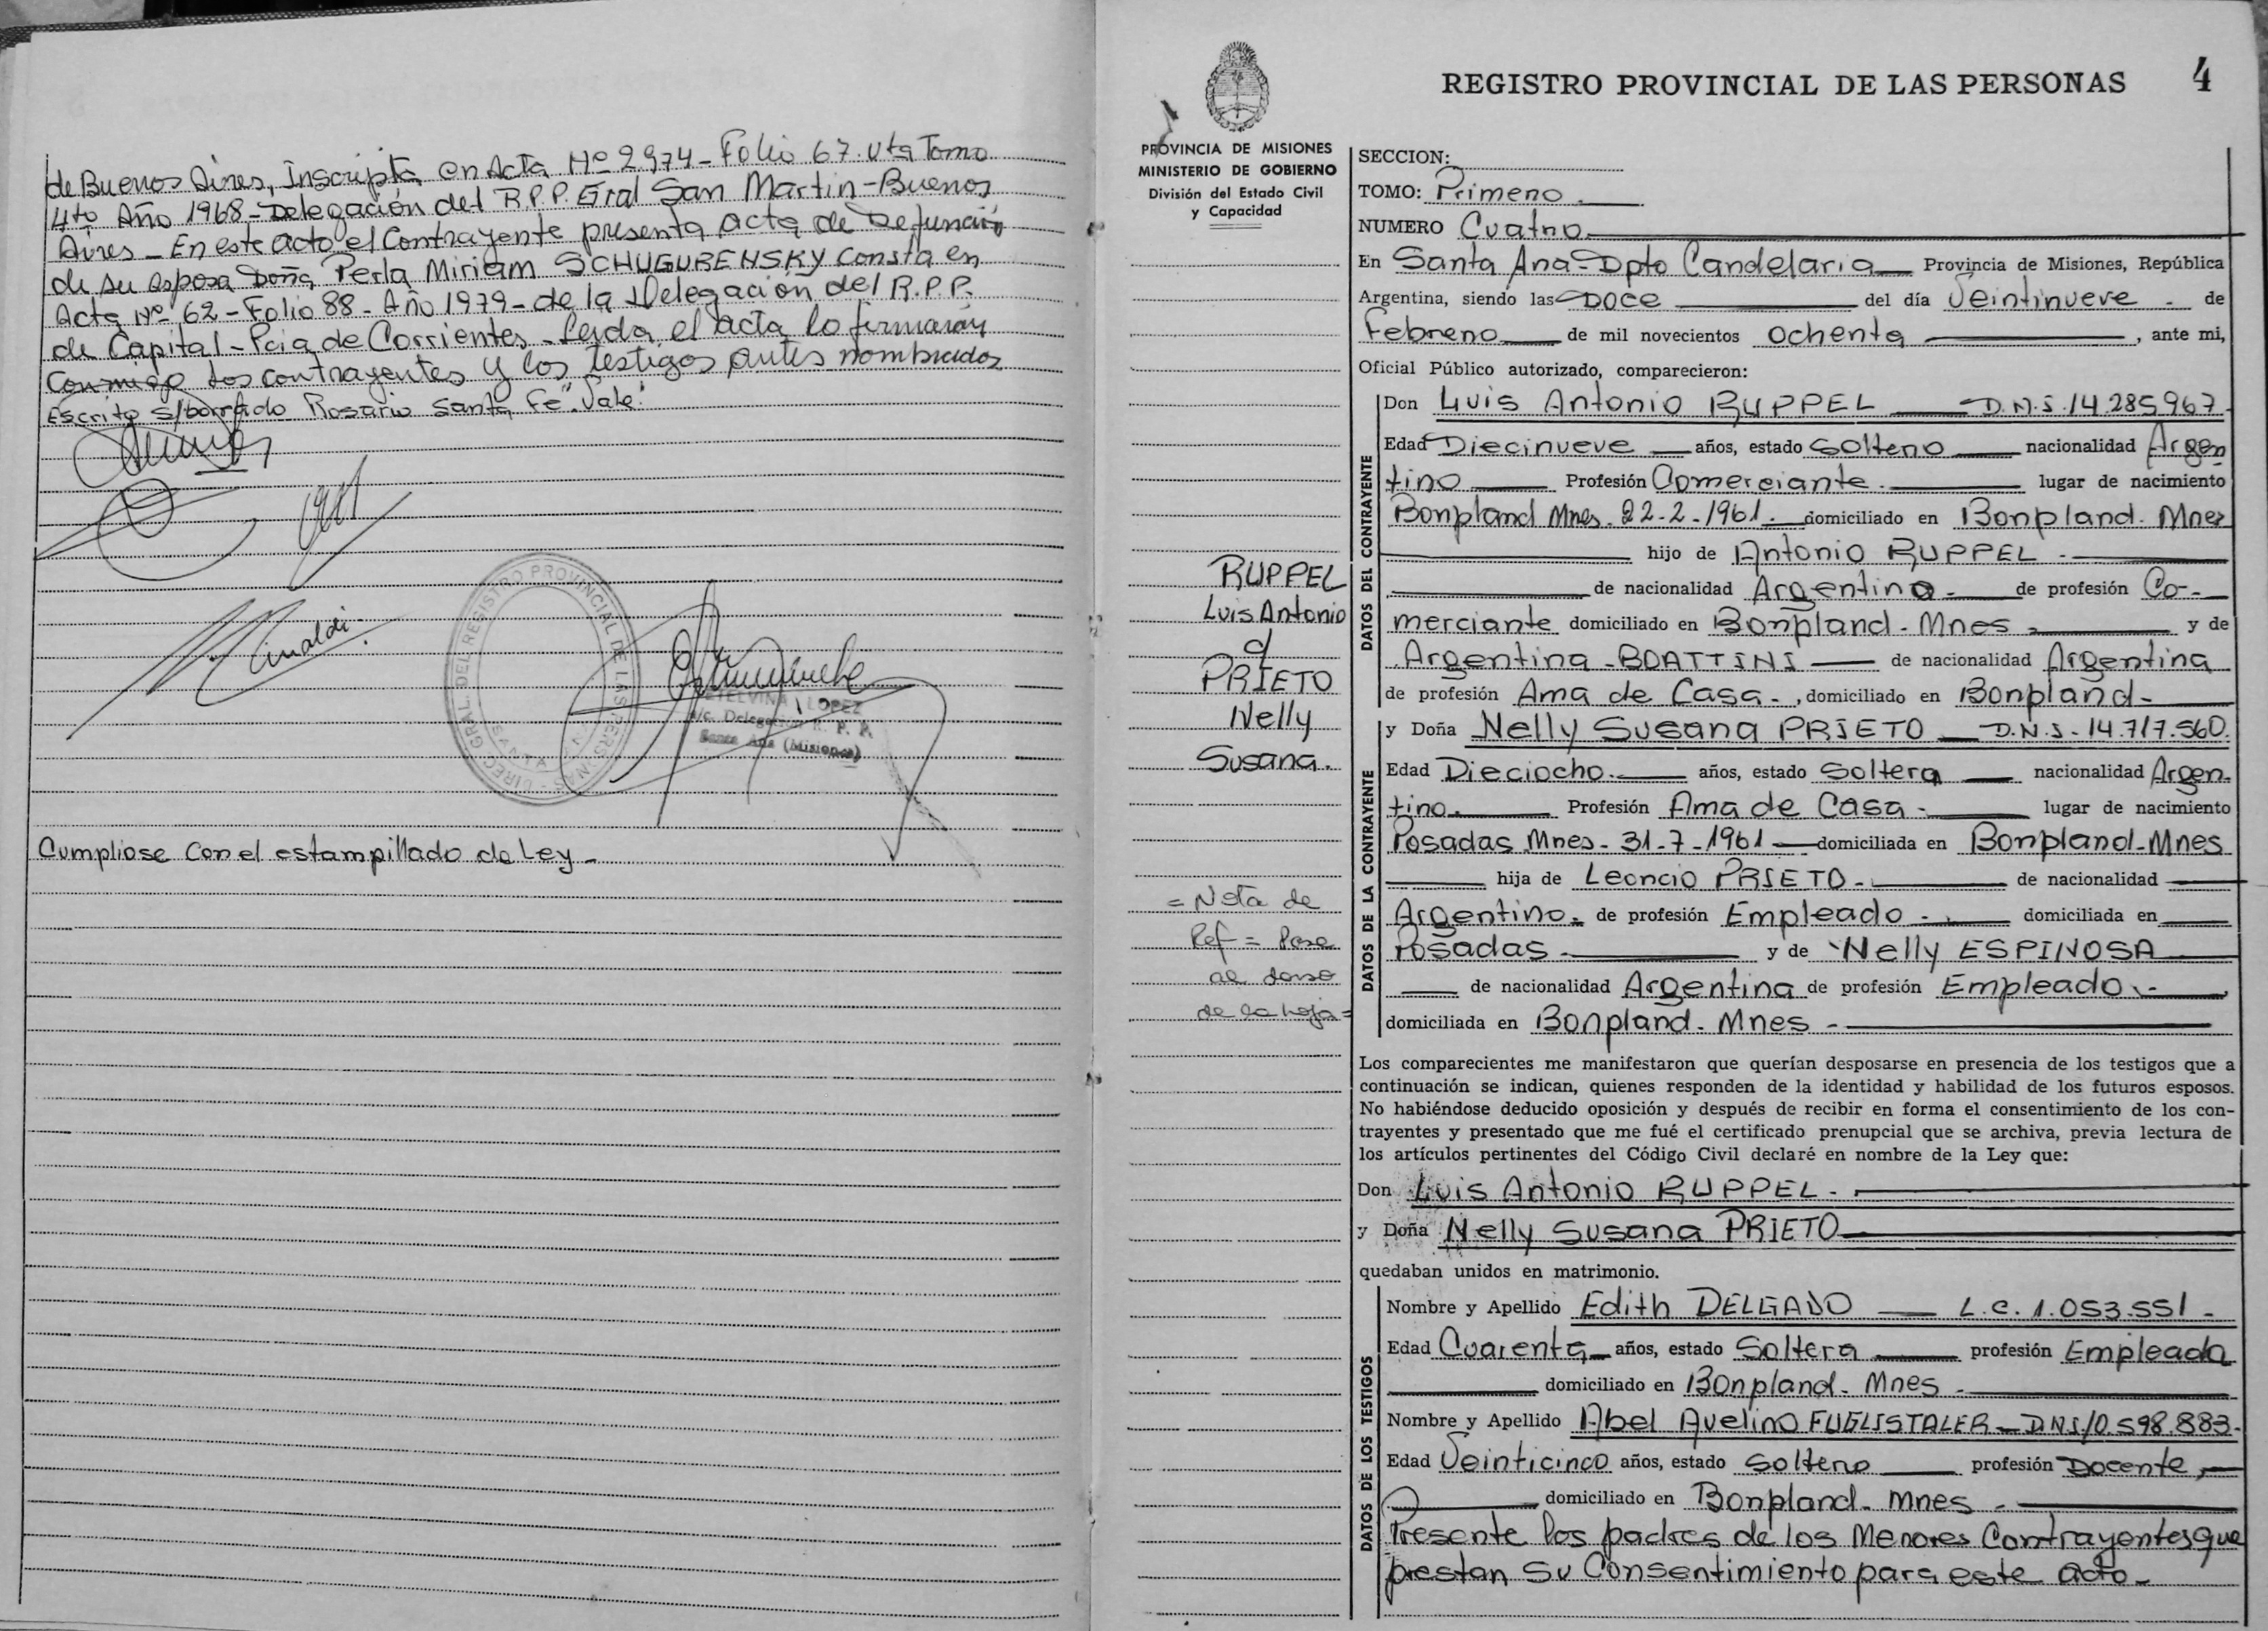 de Buenos Aires, Inscripta en Acta Nº 2974 - Folio 67. Vta Tomo
4to Año 1968 - Delegación del R.P.P. Gral San Martin - Buenos
Aires - En este acto el Contrayente presenta acta de Defunción
de su esposa Doña Perla Miriam SCHUGURENSKY Consta en
Acta Nº 62 - Folio 88 - Año 1979 - de la Delegación del R.P.P.
de Capital - Pcia de Corrientes - Leida el acta lo firmarán
Conmigo los contrayentes y los testigos antes nombrados
Escrito s/borrado Rosario Santa Fe" Vale"
DIREC. GRAL. DEL REGISTRO PROVINCIAL DE LAS PERSONAS
SANTA ANA
ETELVINA LOPEZ
a/c. Delegación R. P. P.
Santa Ana (Misiones)
Cumpliose con el estampillado de Ley -
REGISTRO PROVINCIAL DE LAS PERSONAS 4
PROVINCIA DE MISIONES
MINISTERIO DE GOBIERNO
División del Estado Civil
y Capacidad
RUPPEL
Luis Antonio
c/
PRIETO
Nelly
Susana.
= Nota de
Ref = Pase
al dorso
de la hoja =
SECCION:
TOMO: Primero.
NUMERO Cuatro
En Santa Ana - Dpto Candelaria Provincia de Misiones, República
Argentina, siendo las Doce del día Veintinueve - de
Febrero de mil novecientos ochenta , ante mi,
Oficial Público autorizado, comparecieron:
DATOS DEL CONTRAYENTE
Don Luis Antonio RUPPEL D.N.I. 14.285.967
Edad Diecinueve años, estado Soltero nacionalidad Argen
tino Profesión Comerciante. lugar de nacimiento
Bonpland Mnes. 22-2-1961. domiciliado en Bonpland. Mnes
hijo de Antonio RUPPEL -
de nacionalidad Argentina - de profesión Co-
merciante domiciliado en Bonpland - Mnes - y de
Argentina - BOATTINI de nacionalidad Argentina
de profesión Ama de Casa -, domiciliado en Bonpland -
DATOS DE LA CONTRAYENTE
y Doña Nelly Susana PRIETO D.N.I - 14.717.560.
Edad Dieciocho. años, estado Soltera nacionalidad Argen-
tino. Profesión Ama de Casa - lugar de nacimiento
Posadas Mnes - 31-7-1961 domiciliada en Bonpland - Mnes
hija de Leoncio PRIETO - de nacionalidad
Argentino - de profesión Empleado - domiciliada en
Posadas - y de Nelly ESPINOSA
de nacionalidad Argentina de profesión Empleado -
domiciliada en Bonpland - Mnes -
Los comparecientes me manifestaron que querían desposarse en presencia de los testigos que a
continuación se indican, quienes responden de la identidad y habilidad de los futuros esposos.
No habiéndose deducido oposición y después de recibir en forma el consentimiento de los con-
trayentes y presentado que me fué el certificado prenupcial que se archiva, previa lectura de
los artículos pertinentes del Código Civil declaré en nombre de la Ley que:
Don Luis Antonio RUPPEL -
y Doña Nelly Susana PRIETO
quedaban unidos en matrimonio.
DATOS DE LOS TESTIGOS
Nombre y Apellido Edith DELGADO L.C. 1.053.551 -
Edad Cuarenta años, estado Soltera profesión Empleada
domiciliado en Bonpland - Mnes -
Nombre y Apellido Abel Avelino FUGLISTALER - D.N.I. 10.598.883 -
Edad Veinticinco años, estado Soltero profesión Docente,
domiciliado en Bonpland - Mnes -
Presente los padres de los Menores Contrayentes que
prestan su Consentimiento para este acto -